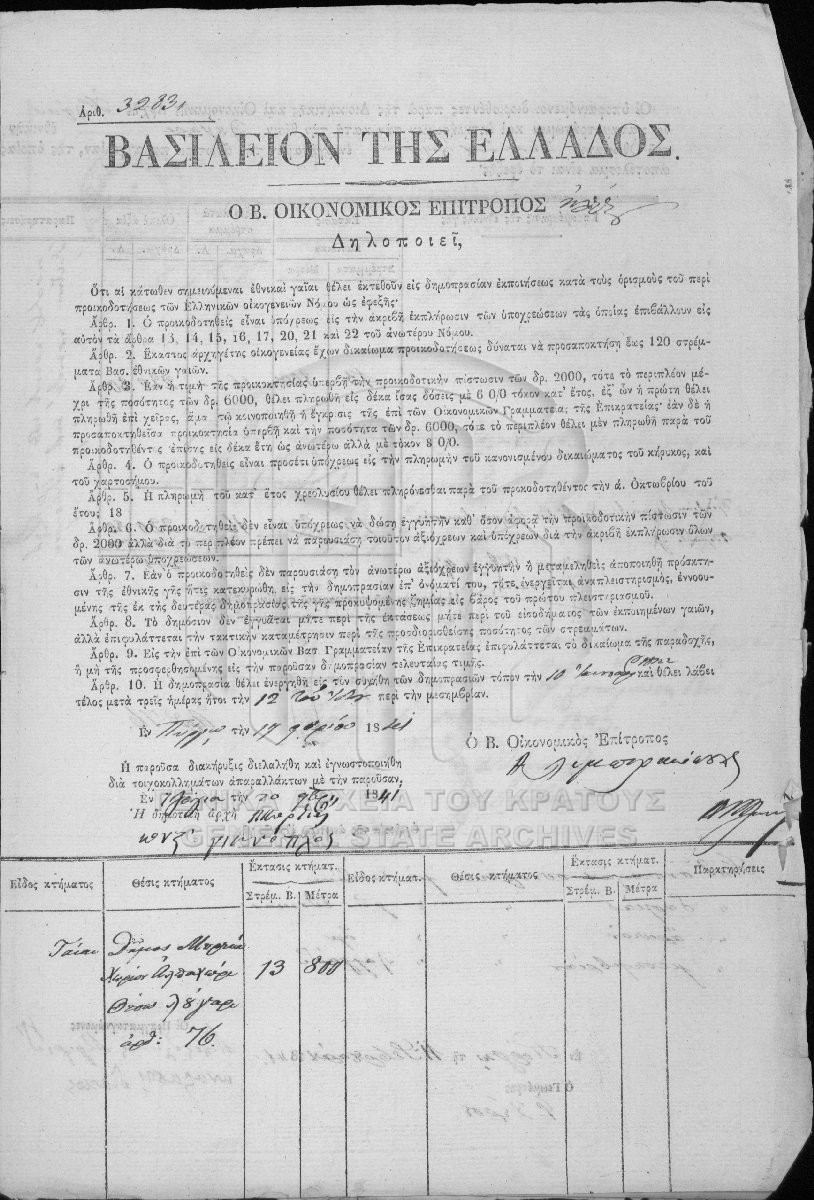 Ἀριθ. 3283
ΒΑΣΙΛΕΙΟΝ ΤΗΣ ΕΛΛΑΔΟΣ.
Ο Β. ΟΙΚΟΝΟΜΙΚΟΣ ΕΠΙΤΡΟΠΟΣ
Δηλοποιεῖ,
Ὅτι αἱ κάτωθεν σημειούμεναι ἐθνικαὶ γαῖαι θέλει ἐκτεθοῦν εἰς δημοπρασίαν ἐκποιήσεως κατὰ τοὺς ὁρισμοὺς τοῦ περὶ
προικοδοτήσεως τῶν Ἑλληνικῶν οἰκογενειῶν Νόμου ὡς ἐφεξῆς·
Ἄρθρ. 1. Ὁ προικοδοτηθεὶς εἶναι ὑπόχρεως εἰς τὴν ἀκριβῆ ἐκπλήρωσιν τῶν ὑποχρεώσεων τὰς ὁποίας ἐπιβάλλουν εἰς
αὐτὸν τὰ ἄρθρα 13, 14, 15, 16, 17, 20, 21 καὶ 22 τοῦ ἀνωτέρω Νόμου.
Ἄρθρ. 2. Ἕκαστος ἀρχηγέτης οἰκογενείας ἔχων δικαίωμα προικοδοτήσεως δύναται νὰ προσαποκτήσῃ ἕως 120 στρέμ-
ματα Βασ. ἐθνικῶν γαιῶν.
Ἄρθρ. 3. Ἐὰν ἡ τιμὴ τῆς προικοκτησίας ὑπερβῇ τὴν προικοδοτικὴν πίστωσιν τῶν δρ. 2000, τότε τὸ περιπλέον μέ-
χρι τῆς ποσότητος τῶν δρ. 6000, θέλει πληρωθῆ εἰς δέκα ἴσας δόσεις μὲ 6 0/0 τόκον κατ' ἔτος, ἐξ' ὧν ἡ πρώτη θέλει
πληρωθῆ ἐπὶ χεῖρος, ἅμα τῷ κοινοποιηθῇ ἡ ἔγκρισις τῆς ἐπὶ τῶν Οἰκονομικῶν Γραμματείας τῆς Ἐπικρατείας· ἐὰν δὲ ἡ
προσαποκτηθεῖσα προικοκτησία ὑπερβῇ καὶ τὴν ποσότητα τῶν δρ. 6000, τότε τὸ περιπλέον θέλει μὲν πληρωθῆ παρὰ τοῦ
προικοδοτηθέντος ἐπίσης εἰς δέκα ἔτη ὡς ἀνωτέρω ἀλλὰ μὲ τόκον 8 0/0.
Ἄρθρ. 4. Ὁ προικοδοτηθεὶς εἶναι προσέτι ὑπόχρεως εἰς τὴν πληρωμὴν τοῦ κανονισμένου δικαιώματος τοῦ κήρυκος, καὶ
τοῦ χαρτοσήμου.
Ἄρθρ. 5. Ἡ πληρωμὴ τοῦ κατ' ἔτος χρεολυσίου θέλει πληρόνεσθαι παρὰ τοῦ προικοδοτηθέντος τὴν ά. Ὀκτωβρίου τοῦ
ἔτους 18
Ἄρθρ. 6. Ὁ προικοδοτηθεὶς δὲν εἶναι ὑπόχρεως νὰ δώσῃ ἐγγυητὴν καθ' ὅσον ἀφορᾷ τὴν προικοδοτικὴν πίστωσιν τῶν
δρ. 2000 ἀλλὰ διὰ τὸ περιπλέον πρέπει νὰ παρουσιάσῃ τοιοῦτον ἀξιόχρεων καὶ ὑπόχρεων διὰ τὴν ἀκριβῆ ἐκπλήρωσιν ὅλων
τῶν ἀνωτέρω ὑποχρεώσεων.
Ἄρθρ. 7. Ἐὰν ὁ προικοδοτηθεὶς δὲν παρουσιάσῃ τὸν ἀνωτέρω ἀξιόχρεων ἐγγυητὴν ἢ μεταμεληθεὶς ἀποποιηθῇ πρόσκτη-
σιν τῆς ἐθνικῆς γῆς ἥτις κατεκυρώθη εἰς τὴν δημοπρασίαν ἐπ' ὀνόματί του, τότε ἐνεργεῖται ἀναπλειστηρισμὸς, ἐννοου-
μένης τῆς ἐκ τῆς δευτέρας δημοπρασίας τῆς γῆς προκυψομένης ζημίας εἰς βάρος τοῦ πρώτου πλειστηριασμοῦ.
Ἄρθρ. 8. Τὸ δημόσιον δὲν ἐγγυᾶται μήτε περὶ τῆς ἐκτάσεως μήτε περὶ τοῦ εἰσοδήματος τῶν ἐκποιημένων γαιῶν,
ἀλλὰ ἐπιφυλάττεται τὴν τακτικὴν καταμέτρησιν περὶ τῆς προσδιορισθείσης ποσότητος τῶν στρεμμάτων.
Ἄρθρ. 9. Εἰς τὴν ἐπὶ τῶν Οἰκονομικῶν Βασ. Γραμματείαν τῆς Ἐπικρατείας ἐπιφυλάττεται τὸ δικαίωμα τῆς παραδοχῆς,
ἢ μὴ τῆς προσφερθησομένης εἰς τὴν παροῦσαν δημοπρασίαν τελευταίας τιμῆς.
Ἄρθρ. 10. Ἡ δημοπρασία θέλει ἐνεργηθῆ εἰς τὸν συνήθη τῶν δημοπρασιῶν τόπον τὴν 10 καὶ θέλει λάβει
τέλος μετὰ τρεῖς ἡμέρας ἤτοι τὴν 12 τοῦ περὶ τὴν μεσημβρίαν.
Ἐν Πύργῳ τὴν 17 1841
Ὁ Β. Οἰκονομικὸς Ἐπίτροπος
Ἡ παροῦσα διακήρυξις διελαλήθη καὶ ἐγνωστοποιήθη
διὰ τοιχοκολλημάτων ἀπαραλλάκτων μὲ τὴν παροῦσαν,
Ἐν τὴν 20 1841
Ἡ δημοτικὴ ἀρχὴ
ΓΕΝΙΚΑ ΑΡΧΕΙΑ ΤΟΥ ΚΡΑΤΟΥΣ
GENERAL STATE ARCHIVES
Εἶδος κτήματος Θέσις κτήματος Ἔκτασις κτήματ. Στρέμ. Β. Μέτρα Εἶδος κτήματ. Θέσις κτήματος Ἔκτασις κτήματ. Στρέμ. Β. Μέτρα Παρατηρήσεις
Γαῖαι Δῆμος
Χωρίον 13 800
Θέσις
ἀρθ: 76.